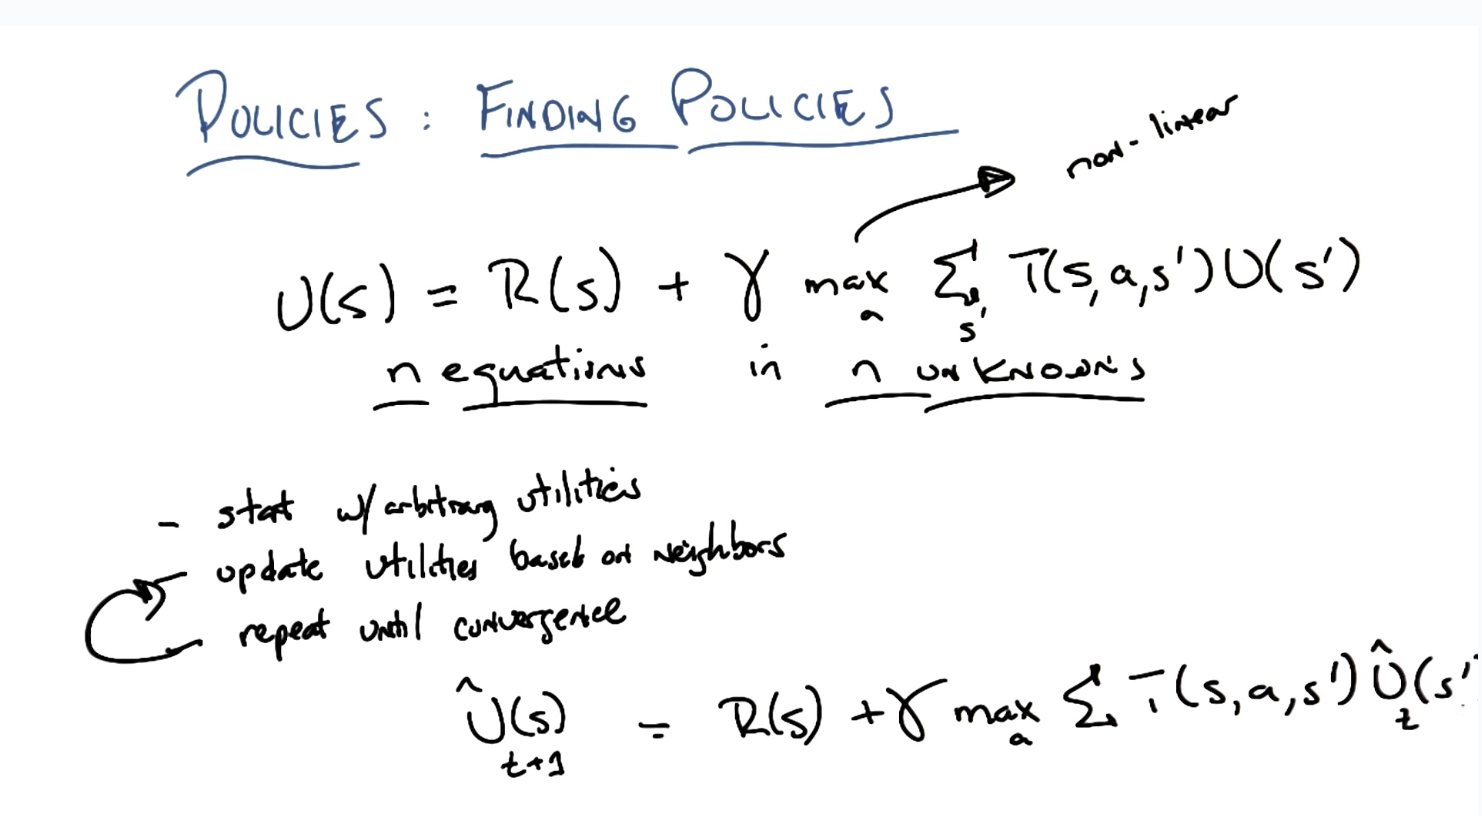 POLICIES: FINDING POLICIES
non-linear
U(s) = R(s) + γ max_a Σ_s' T(s,a,s') U(s')
n equations in n unknowns
- start w/ arbitrary utilities
- update utilities based on neighbors
repeat until convergence
Û_t+1(s) = R(s) + γ max_a Σ T(s,a,s') Û_t(s'